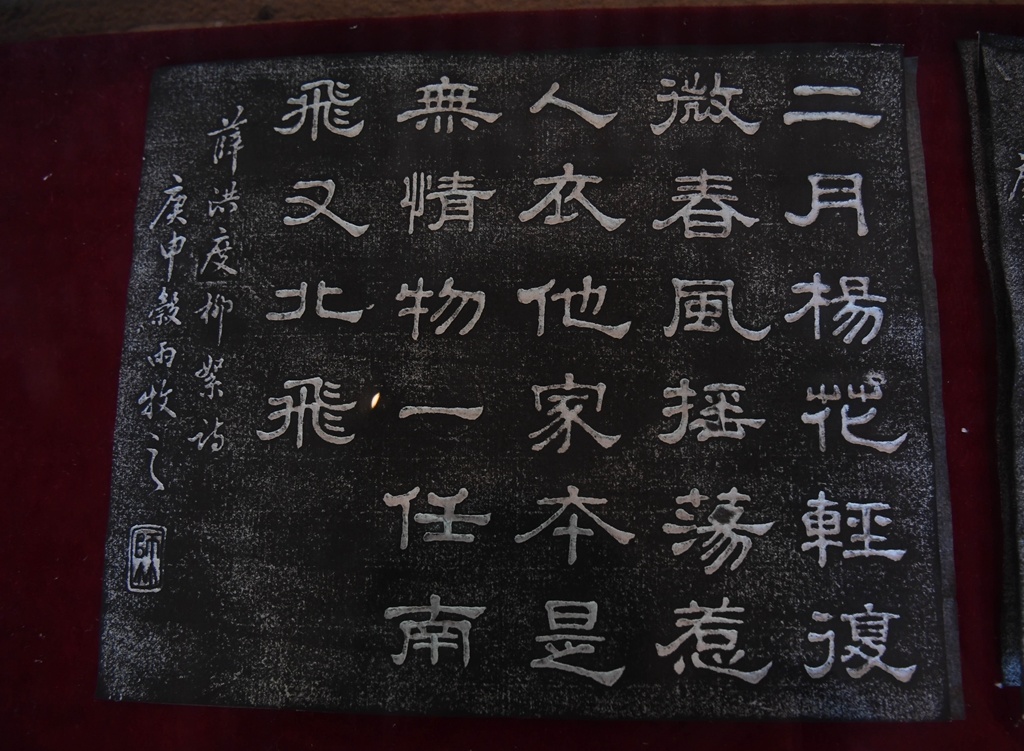 二月楊花輕復
微春風摇蕩惹
人衣他家本是
無情物一任南
飛又北飛
薛洪度柳絮詩
庚申穀雨牧之
師竹